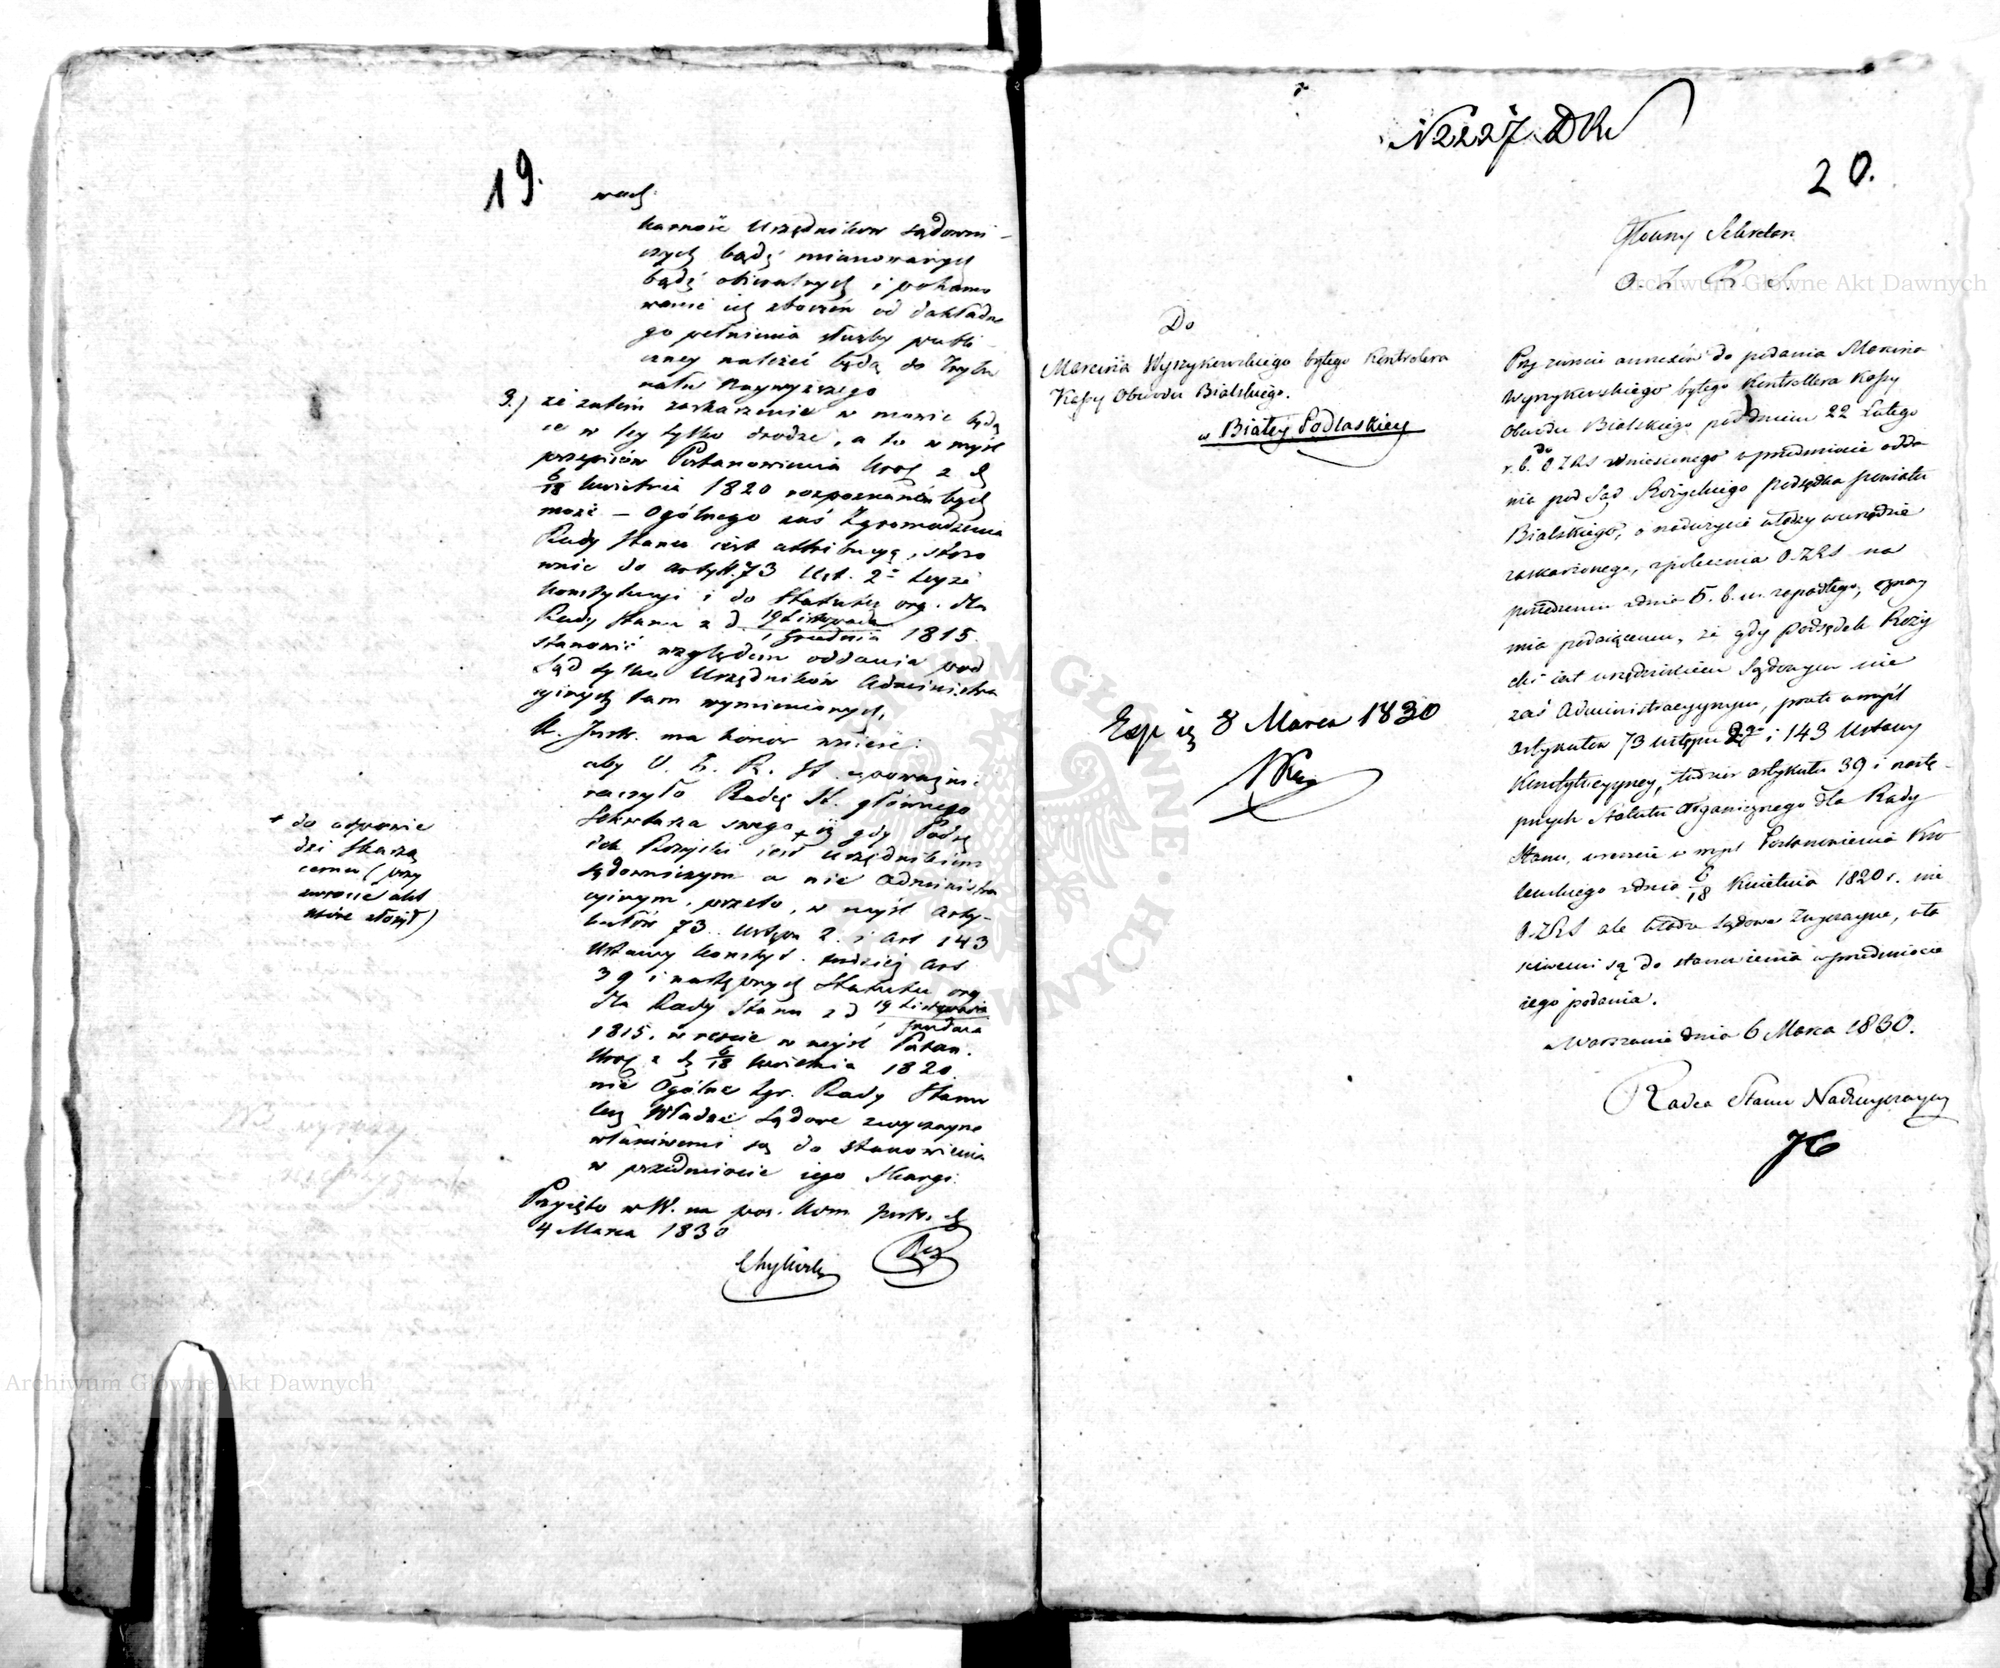 19.
wach:
karność Urzędników sądowni-
czych bądź mianowanych
bądź obieralnych i pohamo
wanie ich zboczeń od dokładne
go pełnienia służby publi-
czney należeć będą do Trybu
nału Naywyższego
3.) że zatem zaskarżenie w mowie będą
ce w tey tylko drodze, a to w myśl
przepisów Postanowienia Król z d
6/18 kwietnia 1820 rozpoznaném bydź
może — Ogólnego zaś Zgromadzenia
Rady Stanu iest attribucyą, stoso
wnie do artyk. 73 Ust. 2º teyże
Konstytucyi i do Statutu org. dla
Rady Stanu z d. 19 Listopada / 1 Grudnia 1815
stanowić względem oddania pod
Sąd tylko Urzędników Administra
cyinych tam wymienionych,
K. Instr. ma honor wnieść:
aby O. Z. R. St. upoważnić
raczyło Radcę St. głównego
Sekretarza swego + iż gdy Podsę
dek Rożycki iest urzędnikiem
sądowniczym a nie Administra
cyinym, przeto, w myśl Arty-
kułów 73. Ustępu 2. i Art 143
Ustawy Konstyt. tudzież Art
39 i następnych Statutu org
dla Rady Stanu z d 19 Listopada / 1 Grudnia
1815. w reszcie w myśl Postan.
Król z d 6/18 kwietnia 1820
nie Ogólne Zgr. Rady Stanu
lecz Władze Sądowe zwyczayne
właściwemi są do stanowienia
w przedmiocie iego Skargi.
Przyięto w W. na pos. Kom. Instr. d
4 Marca 1830
+ do odpowie
dzi Skarżą
cemu (przy
zwrocie akt
które złożył)
N 2227 DR
20.
Główny Sekretarz
O. Z. R. S.
Do
Marcina Wyszykowskiego byłego Kontrolera
Kassy Obwodu Bialskiego.
w Białey Podlaskiey
Exp ię 8 Marca 1830
Przy zwrocie annexów do podania Marcina
Wyszykowskiego byłego Kontrollera Kassy
Obwodu Bialskiego pod dniem 22 Lutego
r. b. do OZRS wniesionego w przedmiocie odda
nia pod Sąd Rożyckiego podsędka powiatu
Bialskiego, o nadużycie władzy w urzędzie
zaskarżonego, z polecenia O.ZRS na
posiedzeniu z dnia 5. b. m. zapadłego, oznay
mia podaiącemu, że gdy podsędek Roży
cki iest urzędnikiem Sądowym nie
zaś Administracyynym, przeto w myśl
artykułu 73 ustępu 2go i 143 Ustawy
Konstytucyyney, tudzież artykułu 39 i nastę-
pnych Statutu Organicznego dla Rady
Stanu, wreszcie w myśl Postanowienia Kró
lewskiego z dnia 6/18 Kwietnia 1820 r. nie
O.ZRS ale Władze Sądowe Zwyczayne, wła
ściwemi są do stanowienia w przedmiocie
iego podania.
w Warszawie dnia 6 Marca 1830.
Radca Stanu Nadzwyczayny